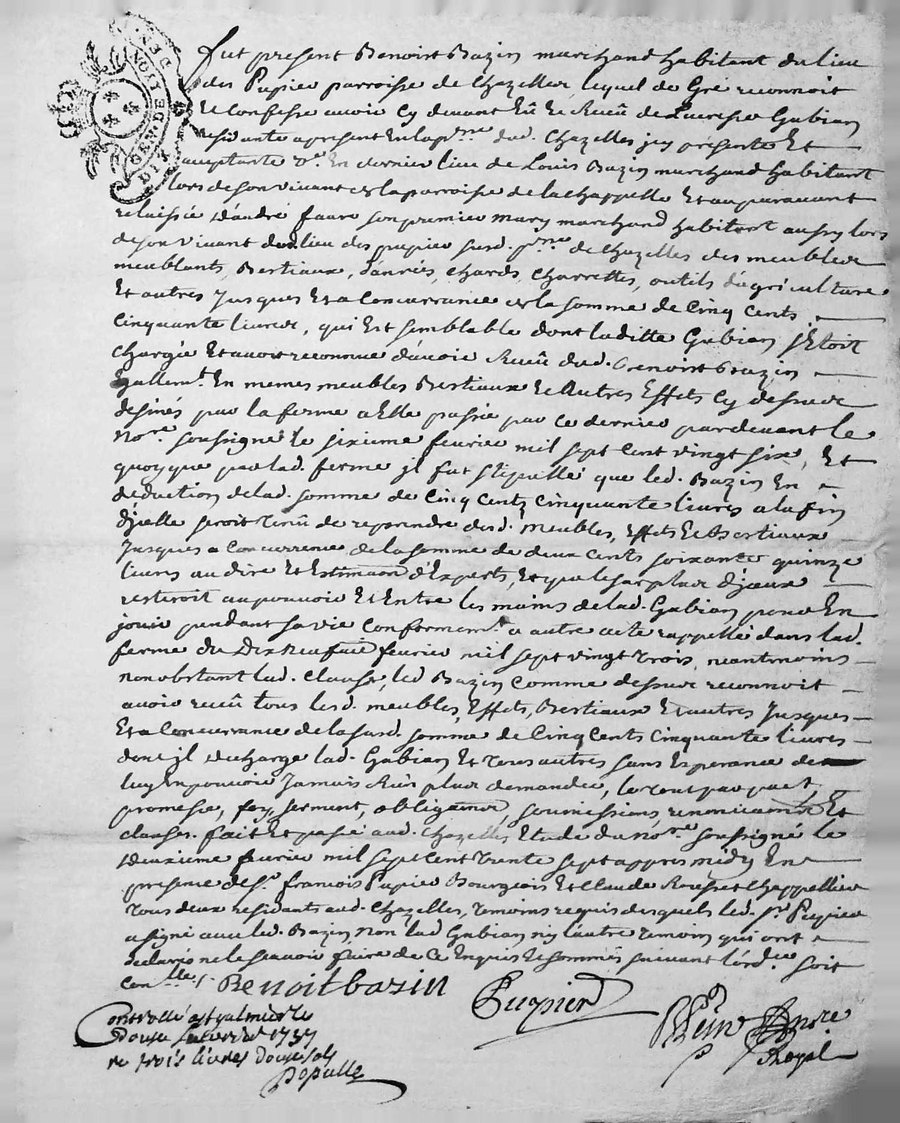 GEN. DE LION DEN.
fut present Benoist Bazin marchand habitant du lieu
des Pupier parroisse de Chazelles lequel de Gré reconnoit
Et Confesse avoir Cy devant Eû Et Reçeû de Gabian
residante apresent En lad. pnne dud. Chazelles jcy présente Et
acceptante ve. En dernier lieu de Louis Bazin marchand habitant
lors de son vivant la parroisse de la chappelle Et auparavant
relaissée d'andré faure son premier mary marchand habitant aussy lors
de son vivant dud. lieu des pupier susd. pnne de Chazelles des meubles
meublants, Bestiaux, danrés, chards, charrettes, outils d'agriculture
Et autres jusques Et a Concurrance de la somme de Cinq Cents
Cinquante livres, qui Est semblable dont laditte Gabian s'Etoit
chargée Et avoit reconnue d'avoir Receû dud. Benoist Bazin
Egallemt. En memes meubles Bestiaux Et Autres Effets Cy dessus
desinés par la ferme a Elle passée par Ce dernier pardevant le
nore. soussigné le sixieme fevrier mil sept Cent vingt six, Et
quoyque par lad. ferme jl fut stipullé que led. Bazin En
deduction de lad. somme de Cinq Cents Cinquante livres a la fin
d'jcelle seroit Tenû de reprendre desd. meubles, Effets Et Bestiaux
jusques a Concurrence de la somme de deux Cents soixante quinze
livres au dire Et Estimaon d'Experts, Et que le surplus d'jceux
resteroit au pouvoir Et Entre les mains de lad. Gabian pour En
jouir pendant sa vie Conformemt. a autre acte rappellé dans lad.
ferme du Dixneufie fevrier mil sept vingt trois, neantmoins
nonobstant lad. Clause, led. Bazin Comme dessus reconnoit
avoir receû tous lesd. meubles, Effets, Bestiaux Et autres jusques
Et a Concurrance de la susd. somme de Cinq Cents Cinquante livres
dont jl decharge lad. Gabian Et tous autres sans Esperance de
luy En pouvoir jamais Rien plus demander, le tout par pact,
promesse, foy, serment, obligaons, soumissions, renonciaons Et
clauses. fait Et passé aud. Chazelles Etude du nore. soussigné le
deuxieme fevrier mil sept Cent Trente sept appres midy En
presence de Sr. françois Pupier Bourgeois Et Claude Rousset Chappellier
tous deux residants aud. Chazelles, temoins requis desquels led. Sr. Pupier
a signé avec led. Bazin, non lad Gabian ny lautre temoin qui ont
declaré ne le savoir faire de Ce Enquis Et sommés suivant lord.ce soit
Conllé.
Benoitbazin
Pupier
Royal
Controllé a st galmier le
Douse fevrier 1737
re trois livres douse sols
Populle